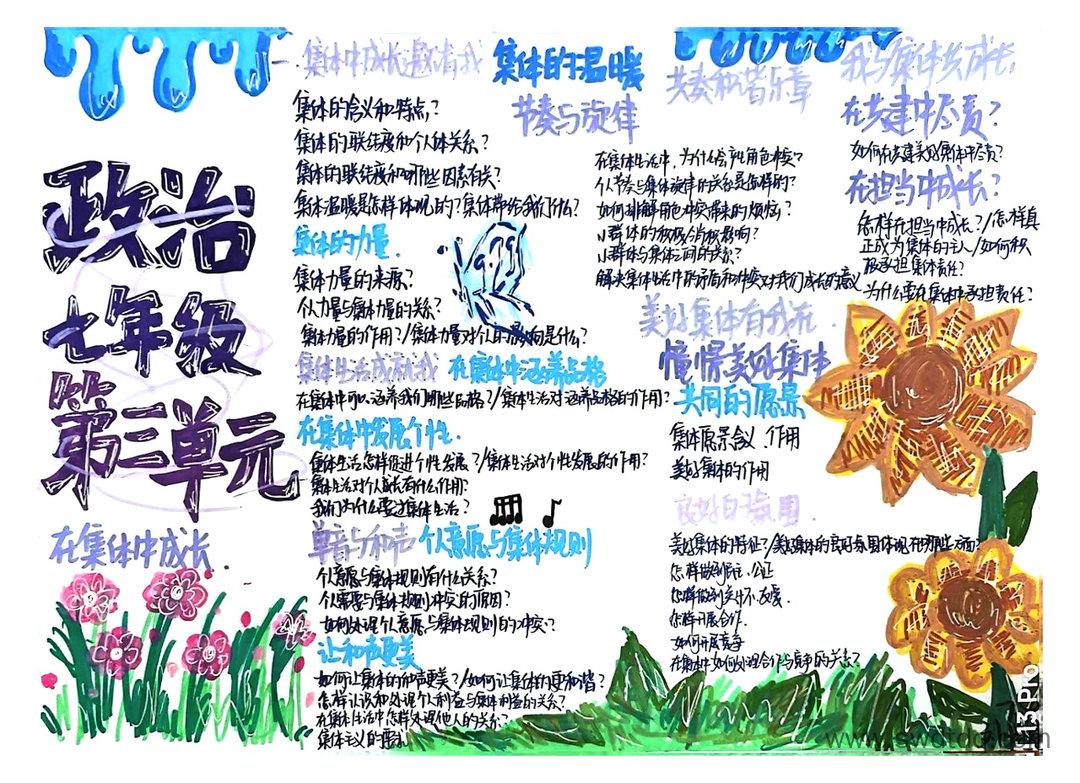 政治
七年级
第三单元
在集体中成长
一.集体中成长邀请我
集体的温暖
集体的含义和特点?
集体的联结度和个体关系?
集体的联结度和哪些因素有关?
集体温暖是怎样体现的?集体带给我们什么?
集体的力量.
集体力量的来源?
个人力量与集体力量的关系?
集体力量的作用?/集体力量对个人的影响是什么?
集体生活成就我
在集体中涵养品格
在集体中可以涵养我们哪些品格?/集体生活对涵养品格的作用?
在集体中发展个性.
集体生活怎样促进个性发展?/集体生活对个性发展的作用?
集体生活对个人成长有什么作用?
我们为什么要过集体生活?
单音与和声
个人意愿与集体规则
个人意愿与集体规则有什么关系?
个人意愿与集体规则冲突的原因?
如何处理个人意愿与集体规则的冲突?
让和声更美
如何让集体的和声更美?/如何让集体的更和谐?
怎样认识和处理个人利益与集体利益的关系?
在集体生活中怎样处理他人的关系?
集体主义的要求
节奏与旋律
在集体生活中,为什么会产生角色冲突?
个人节奏与集体旋律的关系是怎样的?
如何排解角色冲突带来的烦恼?
小群体的积极消极影响?
小群体与集体之间的关系?
解决集体生活中的矛盾和冲突对我们成长的意义
共奏和谐乐章
美好集体有我在.
憧憬美好集体
共同的愿景
集体愿景含义 作用
美好集体的作用
良好的氛围.
美好集体的特征?/美好集体的良好氛围体现在哪些方面?
怎样做到民主、公正
怎样做到关怀、友爱.
怎样开展合作.
如何开展竞争
在集体中如何处理合作与竞争的关系?
我与集体共成长
在共建中尽责?
如何在共建美好集体中尽责?
在担当中成长?
怎样在担当中成长?/怎样真
正成为集体的主人/如何积
极承担集体责任?
为什么要在集体中承担责任?